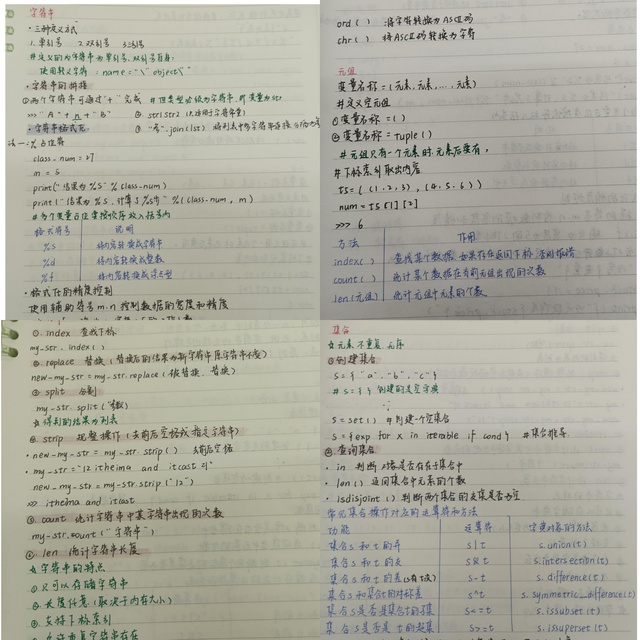 字符串
·三种定义方式
1.单引号 2.双引号 3.三引号
#定义的为字符串为单引号、双引号自身:
使用转义字符 : name = "\" object\"
·字符串的拼接
①两个字符串可通过"+"完成 #但类型必须为字符串, 即变量为str
>>> "A" + n + "B" ② str1 str2 (只适用于字符串常量)
·字符串格式化 ③ "号".join(list)
法一:% 占位符
class-num = 27
m = 6
print("结果为 %s" % class-num)
print("结果为 %s, 计算了 %s步" % (class-num, m)
#多个变量占位要按次序放入括号内
格式符号 说明
%s 将内容转换成字符串
%d 将内容转换成整数
%f 将内容转换成浮点型
·格式化的精度控制
使用辅助符号 m.n 控制数据的宽度和精度
ord( ) 将字符转换为ASCII码
chr( ) 将ASCII码转换为字符
元组
变量名称 = (元素, 元素, ..., 元素)
#定义空元组
①变量名称 = ( )
②变量名称 = tuple( )
#元组只有一个元素时,元素后要有,
#下标索引取出内容
t5 = ( (1, 2, 3), (4, 5, 6) )
num = t5 [1] [2]
>>> 6
方法 作用
index( ) 查找某个数据,如果存在返回下标,否则报错
count( ) 统计某个数据在当前元组出现的次数
len(元组) 统计元组中元素的个数
①. index 查找下标
my-str.index( )
②. replace 替换 (替换后的结果为新字符串原字符串不变)
new-my-str = my-str.replace(被替换, 替换)
③ split 分割
my-str.split("
☆得到的结果为列表
④ strip 规整操作 (去前后空格或指定字符串)
·new-my-str = my-str.strip( ) 去前后空格
·my-str = "12 itheima and itcast 21"
new-my-str = my-str.strip("12")
>> itheima and itcast
⑤ count 统计字符串中某字符串出现的次数
my-str.count("字符串")
⑥. len 统计字符串长度
☆字符串的特点
①只可以存储字符串
②.长度任意 (取决于内存大小)
③.支持下标索引
允许重复字符串存在
集合
☆元素不重复 无序
①创建集合
s = { "a", "b", "c" }
# s = { } 创建的是空字典
s = set( ) #创建一个空集合
s = {exp for x in iterable if cond } #集合推导
②.查询集合
·in 判断对象是否存在于集合中
·len( ) 返回集合中元素的个数
·isdisjoint( ) 判断两个集合的交集是否为空
常见集合操作对应的运算符和方法
功能 运算符 字集对象的方法
集合 s 和 t 的并 s | t s.union(t)
集合 s 和 t 的交 s & t s.intersection(t)
集合 s 和 t 的差(s有t没) s - t s.difference(t)
集合 s 和集合 t 的对称差 s ^ t s.symmetric_difference(t)
集合 s 是否是集合 t 的子集 s <= t s.issubset(t)
集合 s 是否是 t 的超集 s >= t s.issuperset(t)